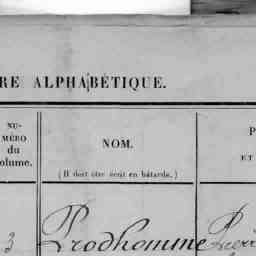 RE ALPHABÉTIQUE.
NU-
MÉRO
du
olume.
NOM.
(Il doit être écrit en bâtarde.)
P
ET
3 Prodhomme Pierr